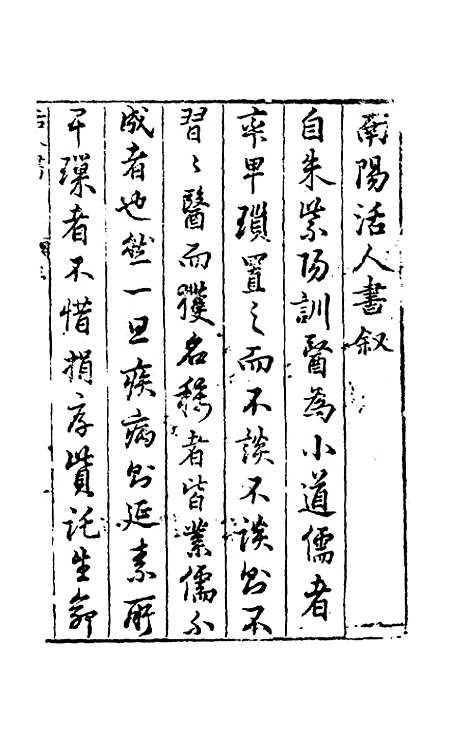 南陽活人書叙
自朱紫陽訓醫為小道儒者
率卑瑣置之而不談不談則不
習〻醫而獲名稱者皆業儒不
成者也然一旦疾病則延素所
卑瑣者不惜捐
託生命